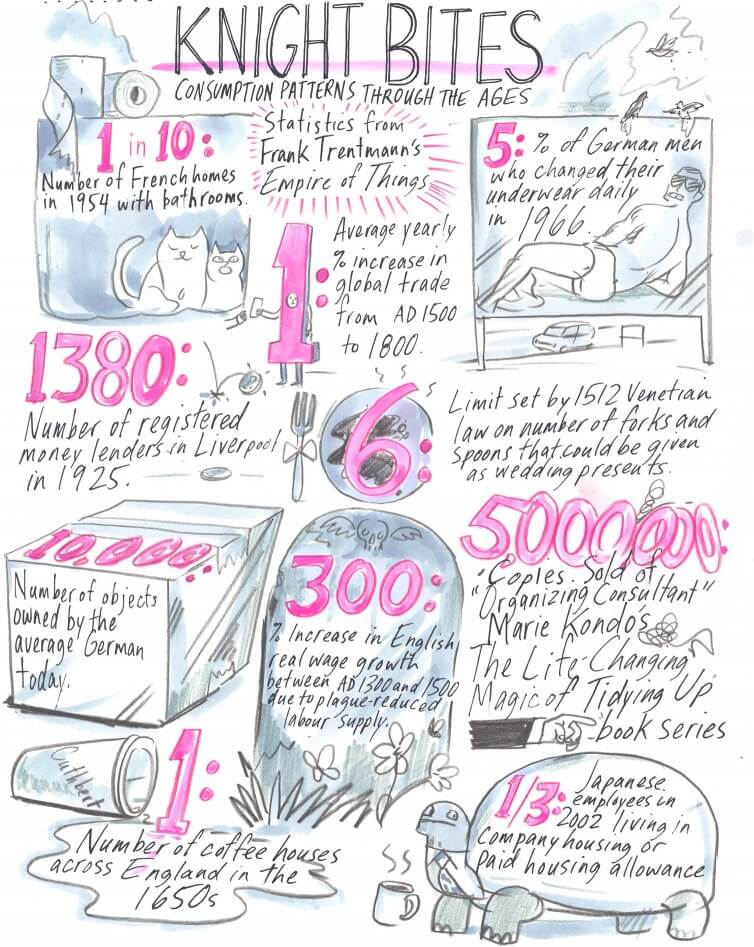 KNIGHT BITES
CONSUMPTION PATTERNS THROUGH THE AGES
1 in 10:
Number of French homes
in 1954 with bathrooms.
Statistics from
Frank Trentmann's
Empire of Things
5: % of German men
who changed their
underwear daily
in 1966.
1:
Average yearly
% increase in
global trade
from AD 1500
to 1800.
1380:
Number of registered
money lenders in Liverpool
in 1925.
6:
Limit set by 1512 Venetian
law on number of forks and
spoons that could be given
as wedding presents.
10,000:
Number of objects
owned by the
average German
today.
300:
% Increase in English
real wage growth
between AD 1300 and 1500
due to plague-reduced
labour supply.
5000000:
Copies Sold of
"Organizing Consultant"
Marie Kondo's
The Life-Changing
Magic of Tidying Up
book series
Cuthbert
1:
Number of coffee houses
across England in the
1650s
1/3: Japanese
employees in
2002 living in
Company housing or
paid housing allowance